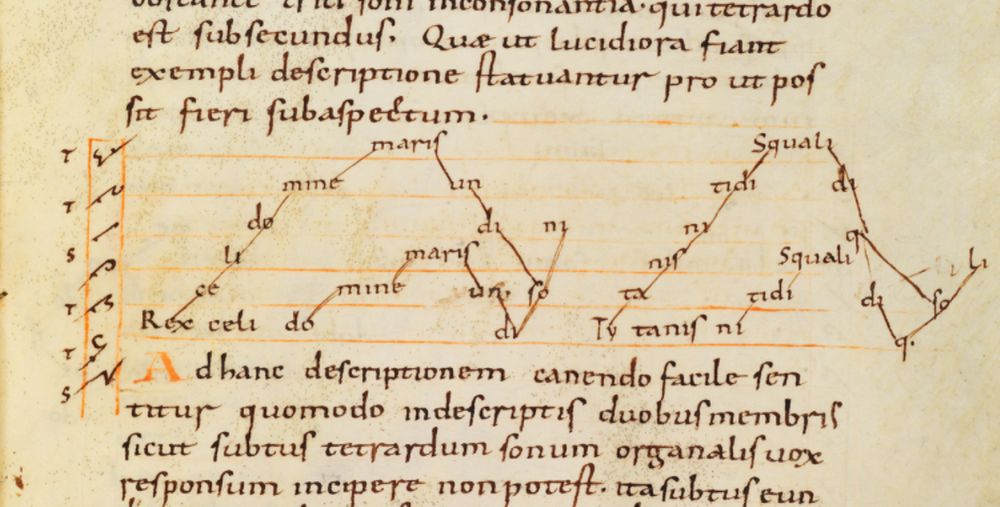 est subsecundus. Quæ ut lucidiora fiant
exempli descriptione statuantur pro ut pos
sit fieri subaspectum.
T maris Squali
mine un tidi di
T do di ni ni q
S li maris nis Squali li
T ce mine un so ta tidi di so
T Rex celi do di Ty tanis ni q.
S
Ad hanc descriptionem canendo facile sen
titur quomodo indescriptis duobus membris
sicut subtus tetrardum sonum organalis vox
responsum incipere non potest. ita subtus eun